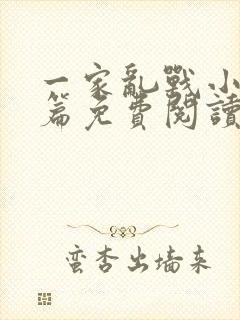 一家亂戰小
篇免費閱讀
蛮杏出墙来